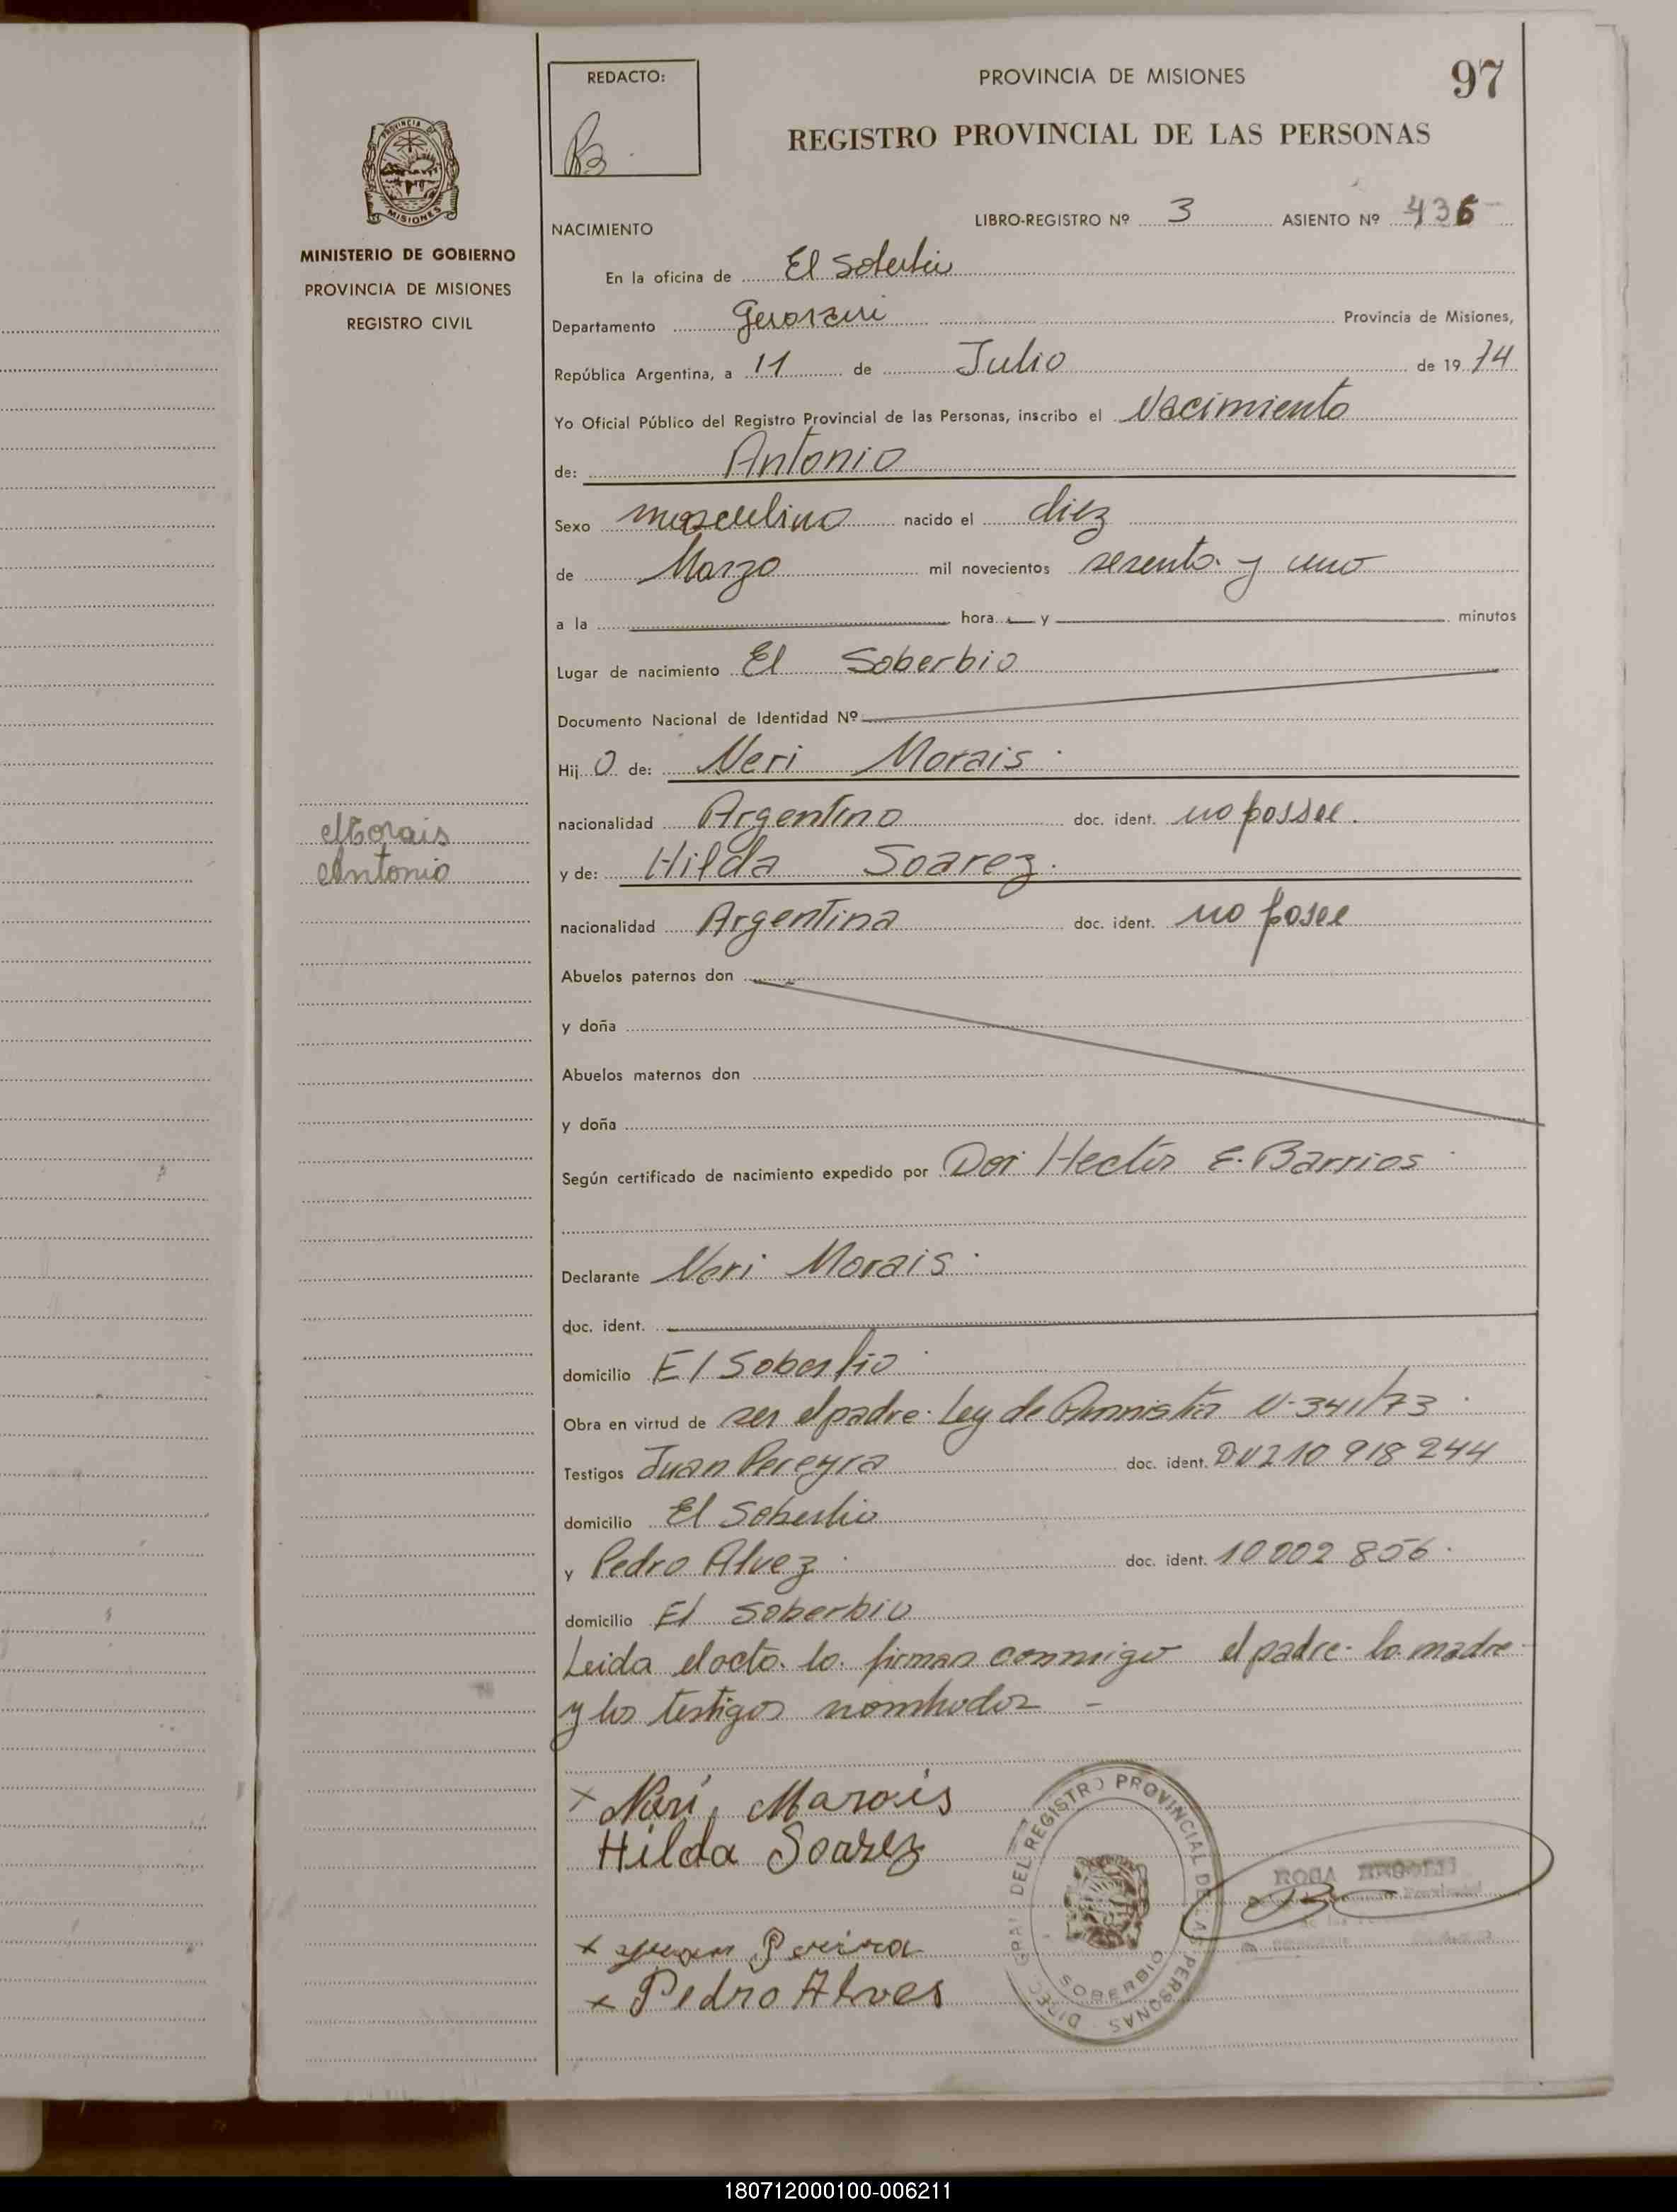 REDACTO:
PROVINCIA DE MISIONES
97
REGISTRO PROVINCIAL DE LAS PERSONAS
PROVINCIA DE
MISIONES
MINISTERIO DE GOBIERNO
PROVINCIA DE MISIONES
REGISTRO CIVIL
NACIMIENTO
LIBRO-REGISTRO Nº 3 ASIENTO Nº 436
En la oficina de El Soberbio
Departamento Guaraní Provincia de Misiones,
República Argentina, a 11 de Julio de 1974
Yo Oficial Público del Registro Provincial de las Personas, inscribo el Nacimiento
de: Antonio
Sexo masculino nacido el diez
de Marzo mil novecientos sesenta y uno
a la hora y minutos
Lugar de nacimiento El Soberbio
Documento Nacional de Identidad Nº
Hijo de: Neri Morais
nacionalidad Argentino doc. ident. no possee.
y de: Hilda Soarez.
nacionalidad Argentina doc. ident. no posee
Morais
Antonio
Abuelos paternos don
y doña
Abuelos maternos don
y doña
Según certificado de nacimiento expedido por Dor Hector E. Barrios
Declarante Neri Morais
doc. ident.
domicilio El Soberbio
Obra en virtud de ser el padre. Ley de Amnistia N-341/73
Testigos Juan Pereyra doc. ident. 10 918 244
domicilio El Soberbio
y Pedro Alvez doc. ident. 10 002 856.
domicilio El Soberbio
Leida el acta la firman conmigo el padre la madre
y los testigos nombrados -
x Neri Marais
Hilda Soarez
x Pereira
x Pedro Alves
DIREC. GRAL. DEL REGISTRO PROVINCIAL DE LAS PERSONAS
SOBERBIO
ROSA
180712000100-006211